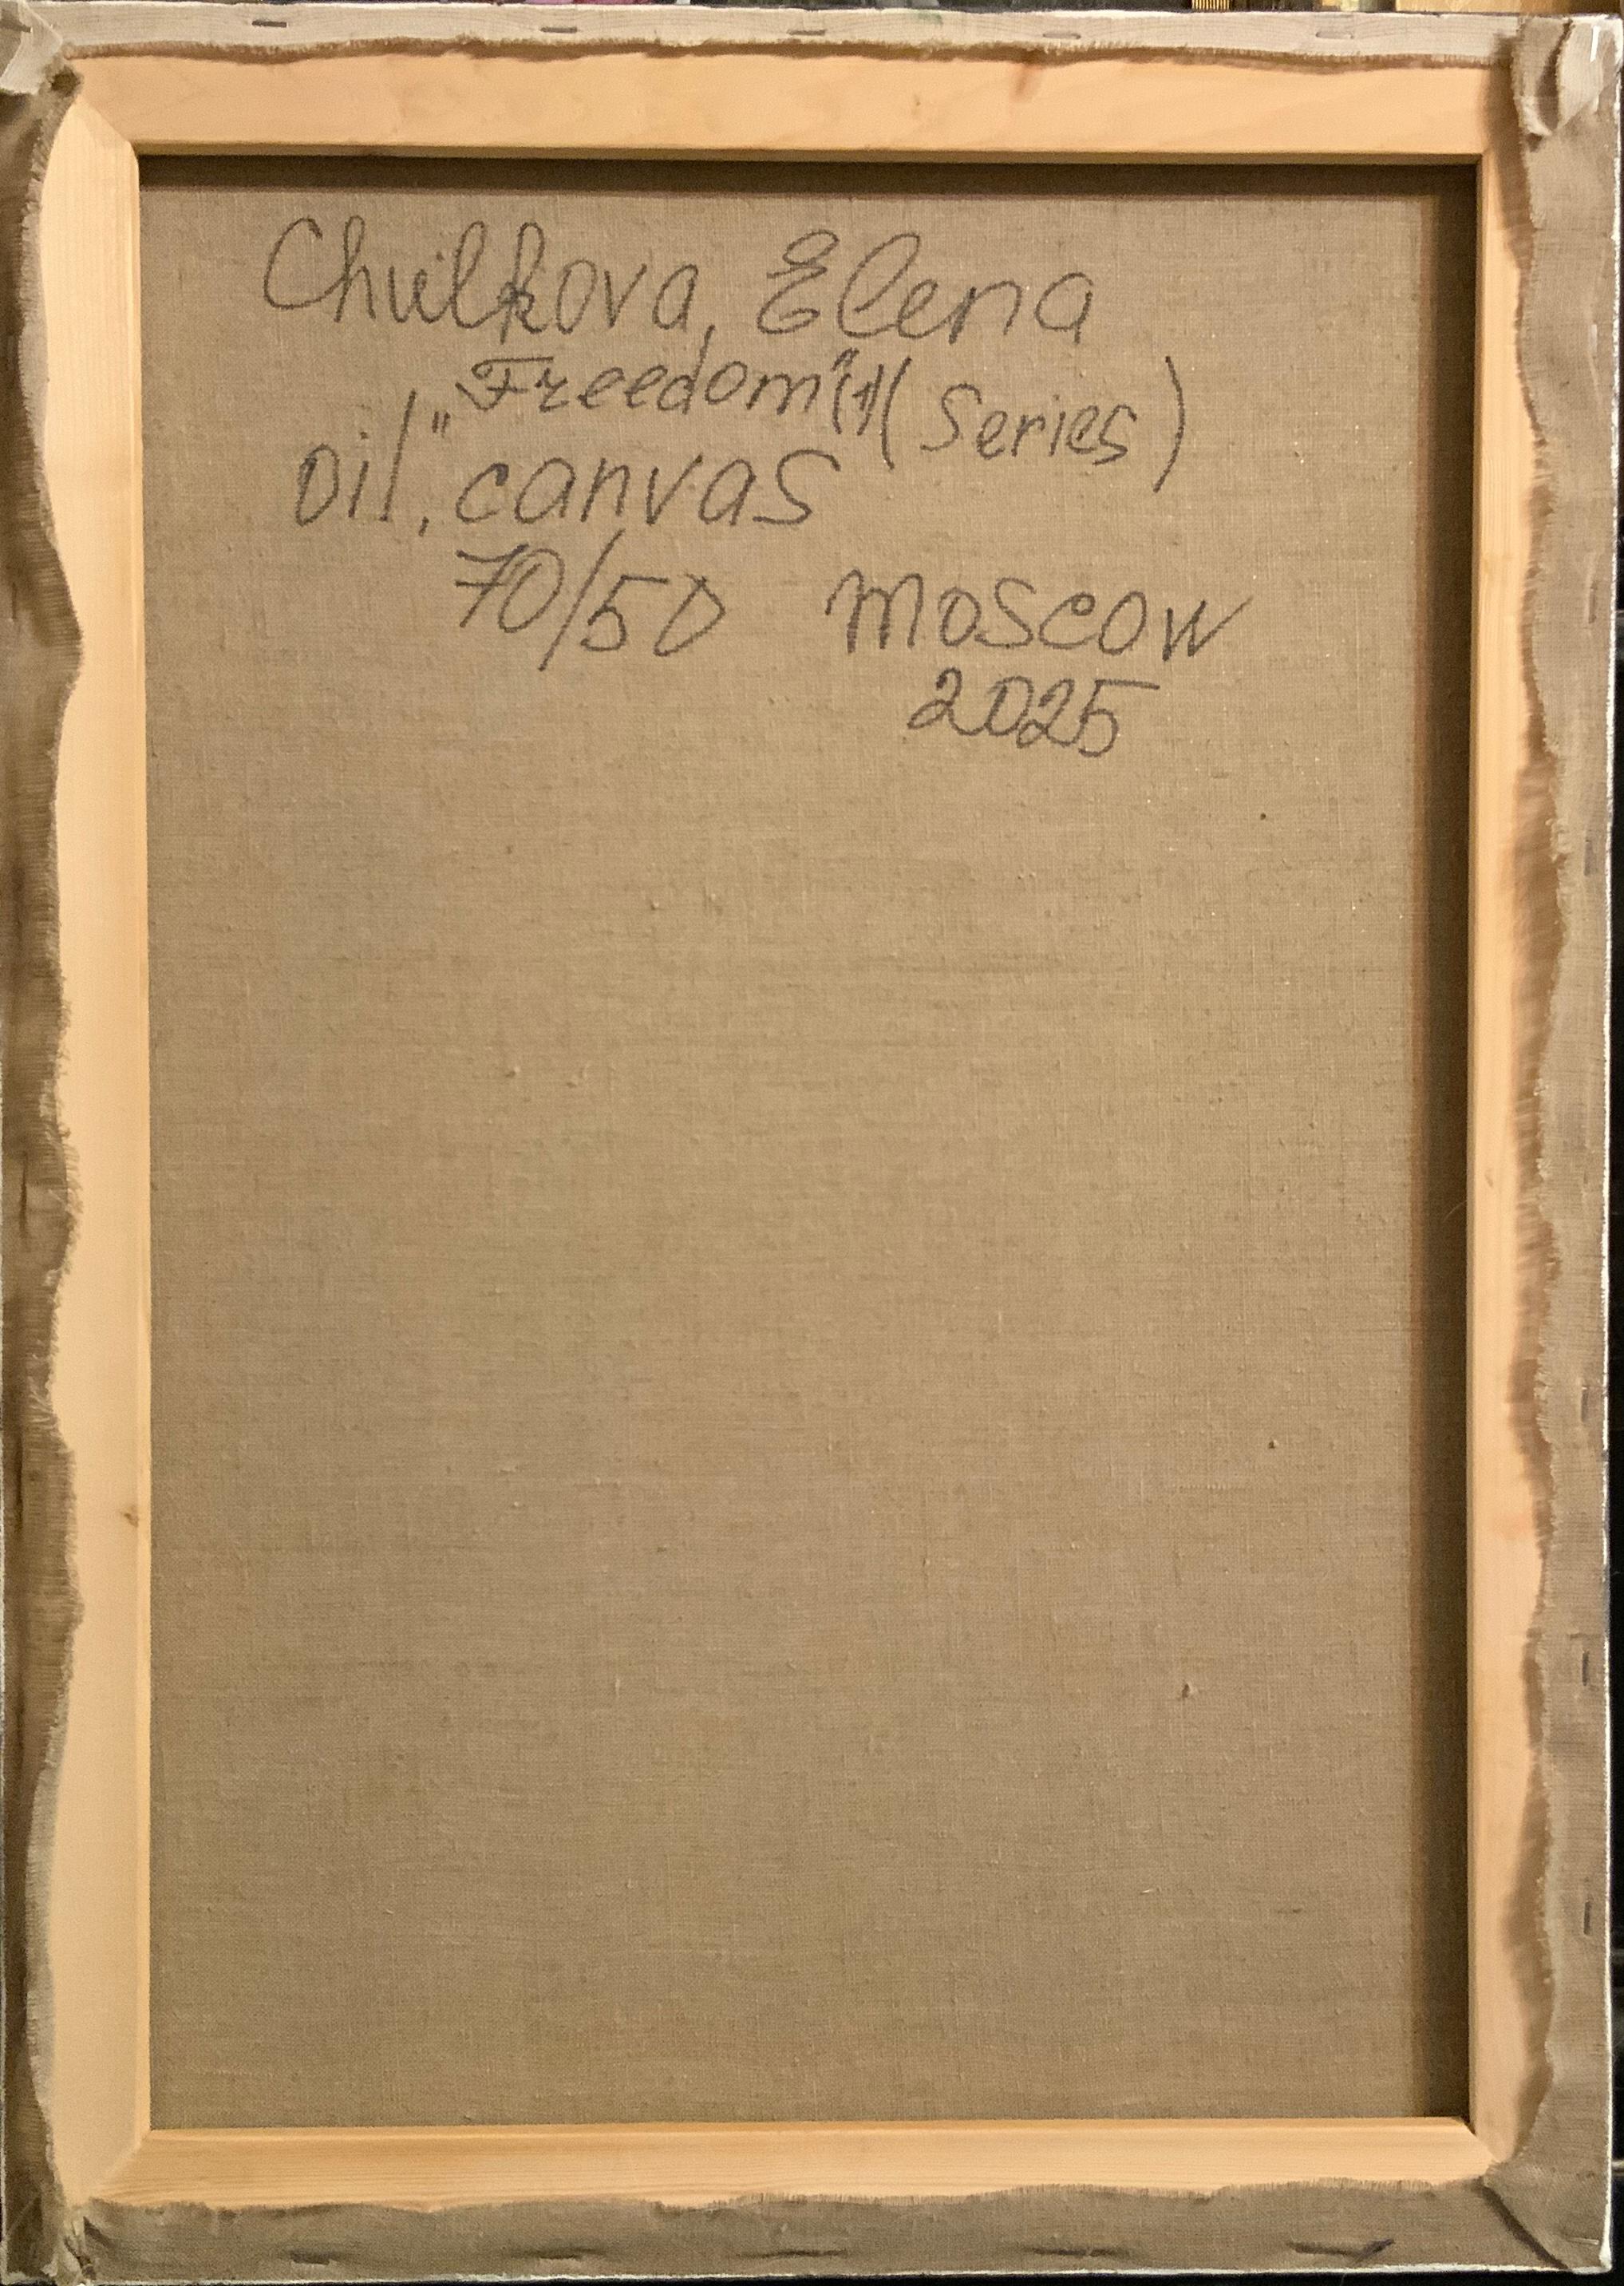 Chulkova, Elena
„Freedom"(1)(Series)
oil, canvas
70/50 Moscow
2025